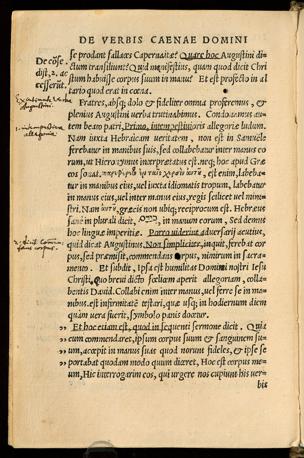 DE VERBIS CAENAE DOMINI
se prodant fallaces Capernaitæ? Quare hoc Augustini di-
ctum transiliunt? Quid manifestius, quam quod dicit Chri
stum habuisse corpus suum in manu? Et est profecto in al
tario quod erat in cœna.
Fratres, absq; dolo & fideliter omnia proferemus, &
plenius Augustini verba trutinabimus. Condonamus au-
tem beato patri, Primo, intempestiuioris allegoriæ ludum.
Nam iuxta Hebraicam veritatem, non est in Samuele
ferebatur in manibus suis, sed collabebatur inter manus eo
rum, ut Hieronymus interpretatus est. neq; hoc apud Græ
cos sonat, est enim, labeba-
tur in manibus eius, uel iuxta idiomatis tropum, labebatur
in manus eius, uel inter manus eius, regis scilicet uel mini-
stri. Nam græcis non ubiq; reciprocum est. Hebraeus
in plurali dicit, in manum eorum, Sed demus
hoc linguæ imperitiæ. Porro uiderint aduersarij acutius,
quid dicat Augustinus, Non simpliciter, inquit, ferebat cor
pus, sed præmisit, commendans corpus, nimirum in sacra-
mento. Et subdit, Ipsa est humilitas Domini nostri Iesu
Christi, quo breui dicto fœliciam aperit allegoriam, colla-
bentis David. Collabi enim inter manus, uel ferre se in ma-
nibus, est infirmitatē testari, quæ usq; in hodiernum diem
quàm uera fuerit, symbolo panis docetur.
„ Et hoc etiam est, quod in sequenti sermone dicit. Quia
„ cum commendaret, ipsum corpus suum & sanguinem su-
„ um, accepit in manus suas quod norunt fideles, & ipse se
„ portabat quodam modo quum diceret, Hoc est corpus me-
um, Hic interrogarim eos, qui urgere nos cupiunt his uer-
bis
De cōse.
dist. 2. ac
cesserūt.